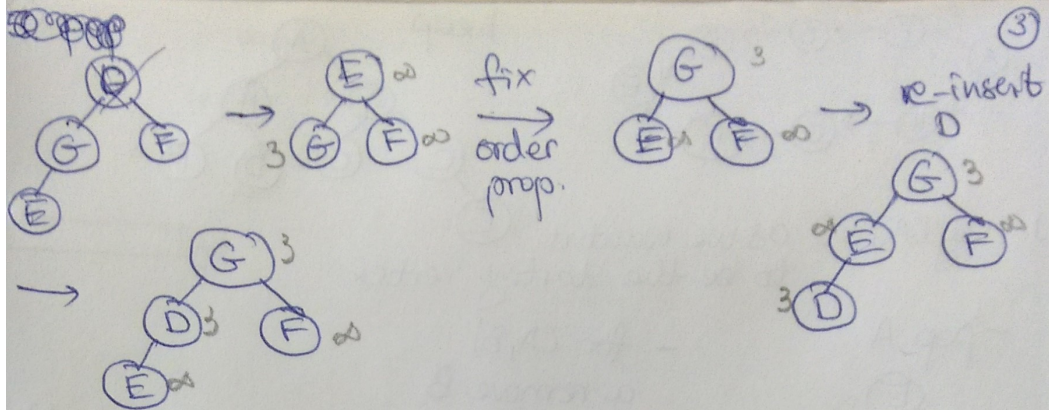 ③
G
F
E
→
E ∞
3 G
F ∞
fix
order
prop.
→
G 3
E ∞
F ∞
→
re-insert
D
G 3
∞ E
F ∞
3 D
→
G 3
D 3
F ∞
E ∞